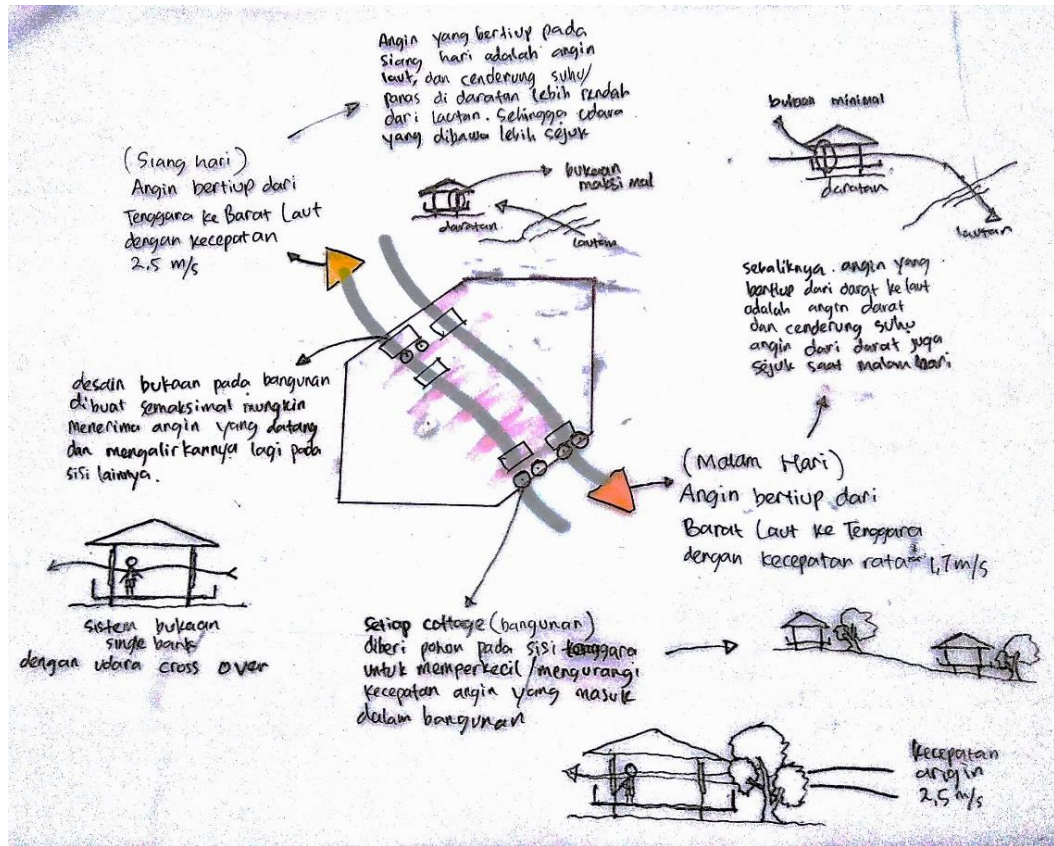 Angin yang bertiup pada
siang hari adalah angin
laut, dan cenderung suhu/
panas di daratan lebih rendah
dari lautan. Sehingga udara
yang dibawa lebih sejuk
(Siang hari)
Angin bertiup dari
Tenggara ke Barat Laut
dengan kecepatan
2,5 m/s
bukaan
maksimal
daratan
lautan
bukaan minimal
daratan
lautan
sebaliknya. angin yang
bertiup dari darat ke laut
adalah angin darat
dan cenderung suhu
angin dari darat juga
sejuk saat malam hari
desain bukaan pada bangunan
dibuat semaksimal mungkin
menerima angin yang datang
dan mengalirkannya lagi pada
sisi lainnya.
(Malam Hari)
Angin bertiup dari
Barat Laut ke Tenggara
dengan kecepatan rata² 1,7 m/s
sistem bukaan
single bank
dengan udara cross over
Setiap cottage (bangunan)
diberi pohon pada sisi tenggara
untuk memperkecil/mengurangi
kecepatan angin yang masuk
dalam bangunan
kecepatan
angin
2,5 m/s